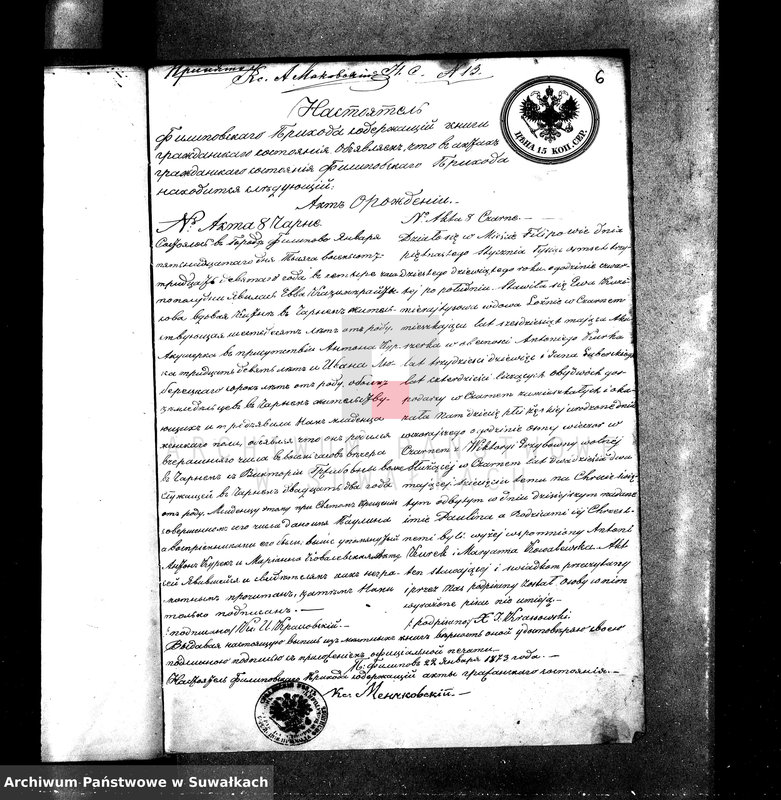 Принято Кс. А Маковскій Н. С. N 13.
6
ЦѢНА 15 КОП. СЕР.
Настоятель
Филиповскаго Прихода содержащій книги
гражданскаго состоянія объявляетъ, что въ актахъ
гражданскаго состоянія Филиповскаго Прихода
находится слѣдующій:
Актъ О рожденіи.
№ Акта 8 Чарне.
Состоялось въ Городѣ Филипово Января
пятнадцатаго дня Тысяча восемсотъ
тридцать девятаго года въ четыре часа
пополудни явилась Ева
вдова въ Чарнемъ жительствующая
шестьдесятъ лѣтъ отъ роду,
Акушерка въ присутствіи Антона Курка
тридцать девять лѣтъ и Ивана
сорокъ лѣтъ отъ роду, обоихъ
земледѣльцевъ въ Чарнемъ жительствующихъ
и предъявила Намъ младенца
женскаго пола, объявляя что оно родилося
вчерашняго числа въ восемь часовъ вечера
въ Чарнемъ изъ Викторіи Грибовны
служащей въ Чарнемъ двадцать два года
отъ роду. Младенцу этому при Святомъ Крещеніи
совершенномъ сего числа дано имя Паулина
а воспріемниками его были, выше упомянутый
Антонъ Курекъ и Маріанна Ковалевская. Актъ
сей явившейся и свидѣтелямъ какъ неграмотнымъ
прочитанъ, затѣмъ Нами
только подписанъ.
подписалъ Кс. И. Крановскій.
№ Aktu 8 Czarne.
Działo się w Mieście Filipowie dnia
piętnastego Stycznia tysiąc ośmset trzydziestego
dziewiątego roku o godzinie czwartej
po południu. Stawiła się Ewa
wdowa w Czarnem
mieszkająca lat sześćdziesiąt mająca Akuszerka
w obecności Antoniego Kurka
lat trzydzieści dziewięć i Jana
lat czterdzieści liczących obydwóch gospodarzy
w Czarnem zamieszkałych i okazała
Nam dziecię płci żeńskiej urodzone dnia
wczorajszego o godzinie ósmej wieczór w
Czarnem z Wiktoryi Grzybowny wolnej
służącej w Czarnem lat dwadzieścia dwa
mającej dziecięciu temu na Chrzcie świętym
odbytym w dniu dzisiejszym nadane
imie Paulina a Rodzicami jej Chrzestnemi
byli: wyżej wspomniony Antoni
Kurek i Maryanna Kowalewska. Akt
ten stawającej i świadkom przeczytany
i przez Nas podpisany został, osoby w nim
wyrażone pisać nie umieją.
podpisnoj X J. Kranowski.
Выдавая настоящую выпись изъ метрическихъ книгъ вѣрность оной удостовѣряю своею
подписью съ приложеніемъ официальной печати.
П. Филиповъ 22 Января 1873 года.
Настоятель Филиповскаго Прихода содержащій акты гражданскаго состоянія.
Кс. Менчковскій.
Archiwum Państwowe w Suwałkach